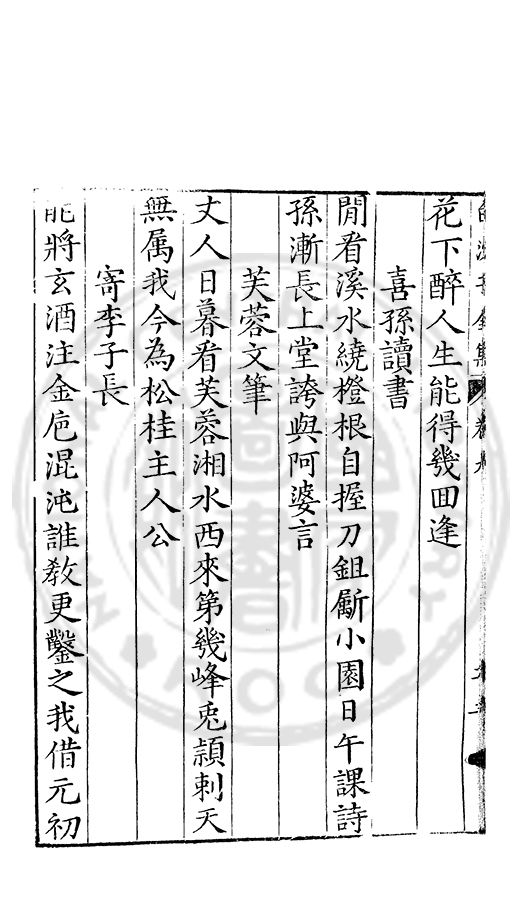 花下醉人生能得幾回逢
喜孫讀書
閒看溪水繞橙根自握刀鉏斸小園日午課詩
孫漸長上堂誇與阿婆言
芙蓉文筆
丈人日暮看芙蓉湘水西來第幾峰兎頴刺天
無属我今為松桂主人公
寄李子長
能將玄酒注金卮混沌誰敎更鑿之我借元初